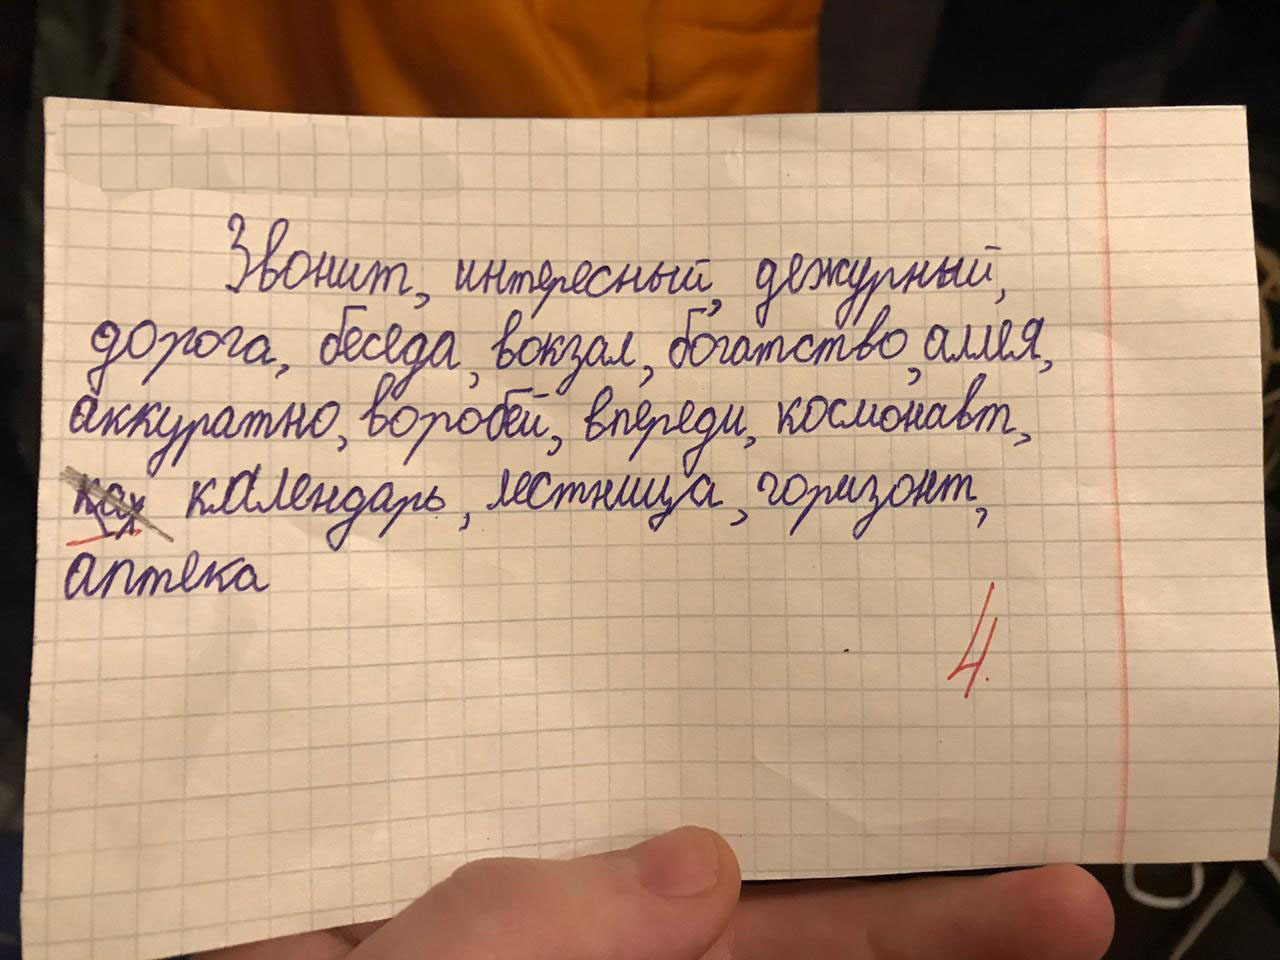 Звонит, интересный, дежурный,
дорога, беседа, вокзал, богатство, аллея,
аккуратно, воробей, впереди, космонавт,
календарь, лестница, горизонт,
аптека
4.